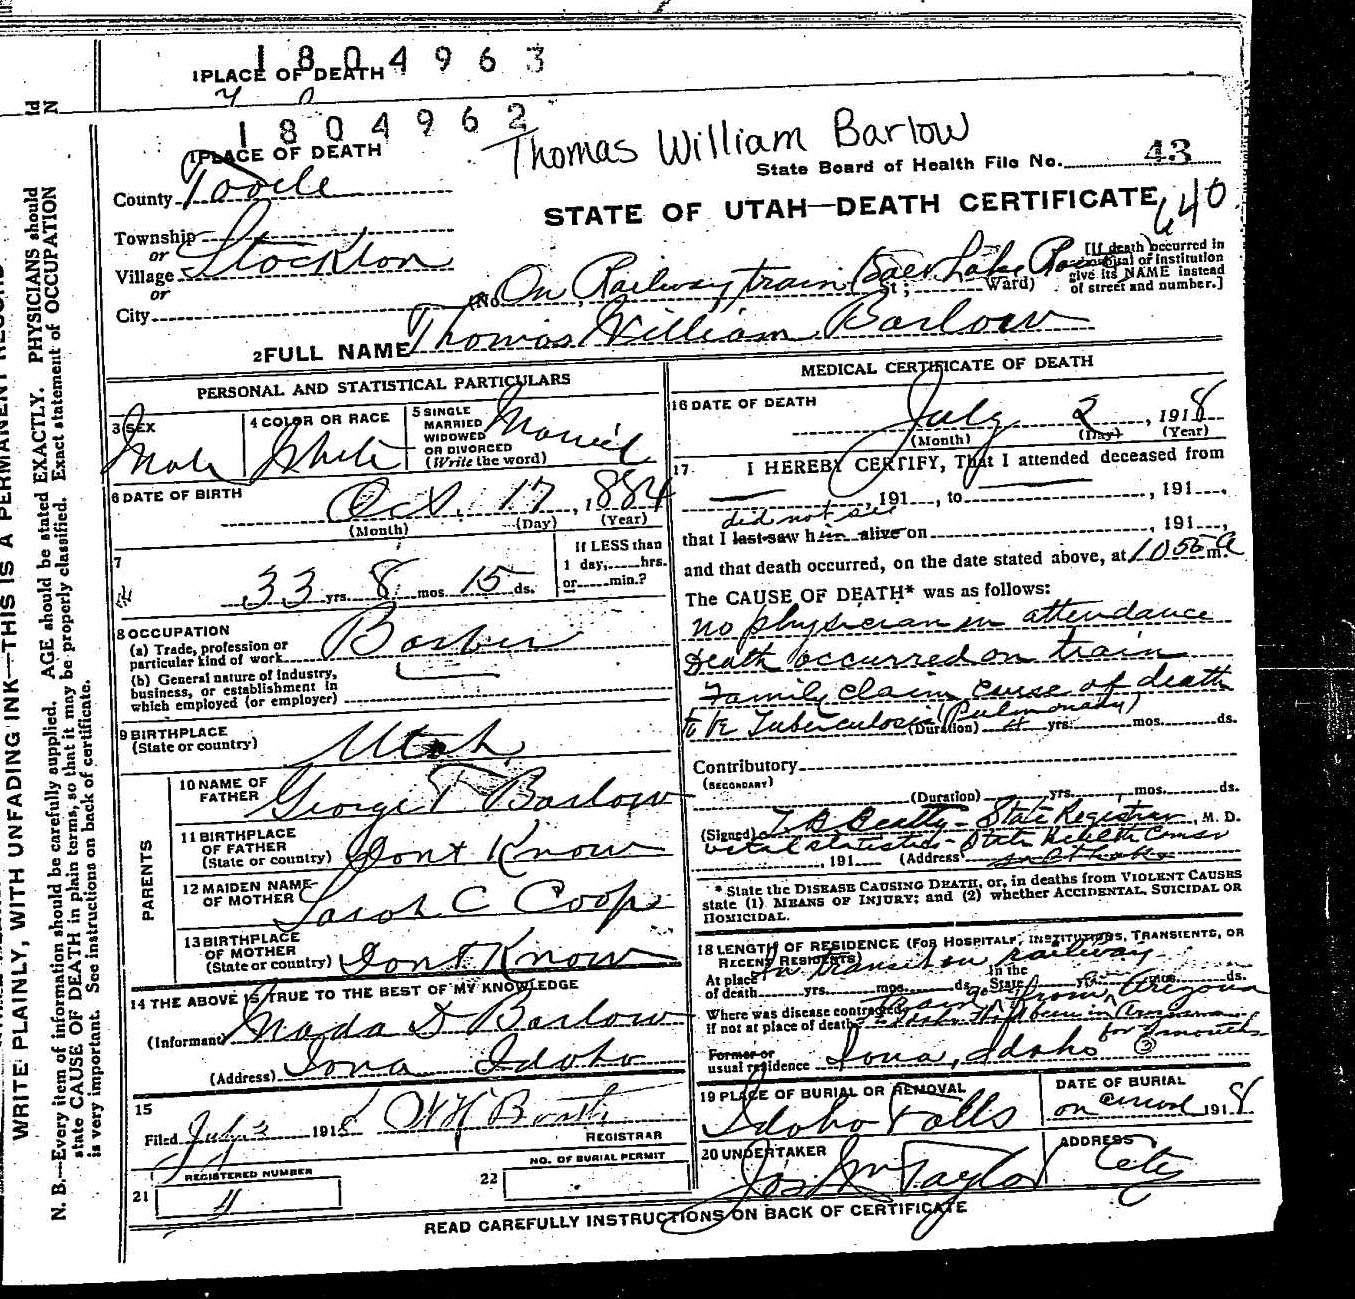 1804963
1 PLACE OF DEATH
1804962
Thomas William Barlow
1 PLACE OF DEATH
State Board of Health File No. 43
County Tooele
STATE OF UTAH—DEATH CERTIFICATE
640
Township
or
Village Stockton
or
City
(No. On Railway train Lake St.; Ward)
[If death occurred in
or institution
give its NAME instead
of street and number.]
2 FULL NAME Thomas William Barlow
PERSONAL AND STATISTICAL PARTICULARS
3 SEX Male
4 COLOR OR RACE White
5 SINGLE
MARRIED
WIDOWED
OR DIVORCED
(Write the word) Married
6 DATE OF BIRTH Oct. 17, 1884
(Month) (Day) (Year)
7
33 yrs. 8 mos. 15 ds.
If LESS than
1 day, hrs.
or min.?
8 OCCUPATION
(a) Trade, profession or
particular kind of work Barber
(b) General nature of industry,
business, or establishment in
which employed (or employer)
9 BIRTHPLACE
(State or country) Utah
PARENTS
10 NAME OF
FATHER George T Barlow
11 BIRTHPLACE
OF FATHER
(State or country) Dont Know
12 MAIDEN NAME
OF MOTHER Sarah C Coop
13 BIRTHPLACE
OF MOTHER
(State or country) Dont Know
14 THE ABOVE IS TRUE TO THE BEST OF MY KNOWLEDGE
(Informant) Mada D Barlow
(Address) Iona Idaho
15
Filed July 3 1918
REGISTRAR
REGISTERED NUMBER
21 4
22 NO. OF BURIAL PERMIT
MEDICAL CERTIFICATE OF DEATH
16 DATE OF DEATH July 2, 1918
(Month) (Day) (Year)
17 I HEREBY CERTIFY, That I attended deceased from
, 191 , to , 191 ,
did not see
that I last saw him alive on , 191 ,
and that death occurred, on the date stated above, at 1055 a m.
The CAUSE OF DEATH* was as follows:
no physician in attendance
Death occurred on train
Family claim cause of death
to be Tuberculosis (Pulmonary)
(Duration) yrs. mos. ds.
Contributory
(SECONDARY)
(Duration) yrs. mos. ds.
(Signed) T B Beatty - State Registrar, M. D.
vital statistics - State Health Comsr
, 191 (Address)
* State the DISEASE CAUSING DEATH, or, in deaths from VIOLENT CAUSES
state (1) MEANS OF INJURY; and (2) whether ACCIDENTAL, SUICIDAL OR
HOMICIDAL.
18 LENGTH OF RESIDENCE (FOR HOSPITALS, INSTITUTIONS, TRANSIENTS, OR
RECENT RESIDENTS) In transit on railway
At place
of death yrs. mos. ds. In the
State yrs. mos. ds.
train from Arizona
Where was disease contracted,
if not at place of death?
been in Arizona
for months
Former or
usual residence Iona, Idaho
19 PLACE OF BURIAL OR REMOVAL
Idaho Falls
DATE OF BURIAL
on arrival 1918
20 UNDERTAKER
Jos Wm Taylor
ADDRESS
City
READ CAREFULLY INSTRUCTIONS ON BACK OF CERTIFICATE
WRITE PLAINLY, WITH UNFADING INK—THIS IS A PERMANENT RECORD
N. B.—Every item of information should be carefully supplied. AGE should be stated EXACTLY. PHYSICIANS should
state CAUSE OF DEATH in plain terms, so that it may be properly classified. Exact statement of OCCUPATION
is very important. See instructions on back of certificate.